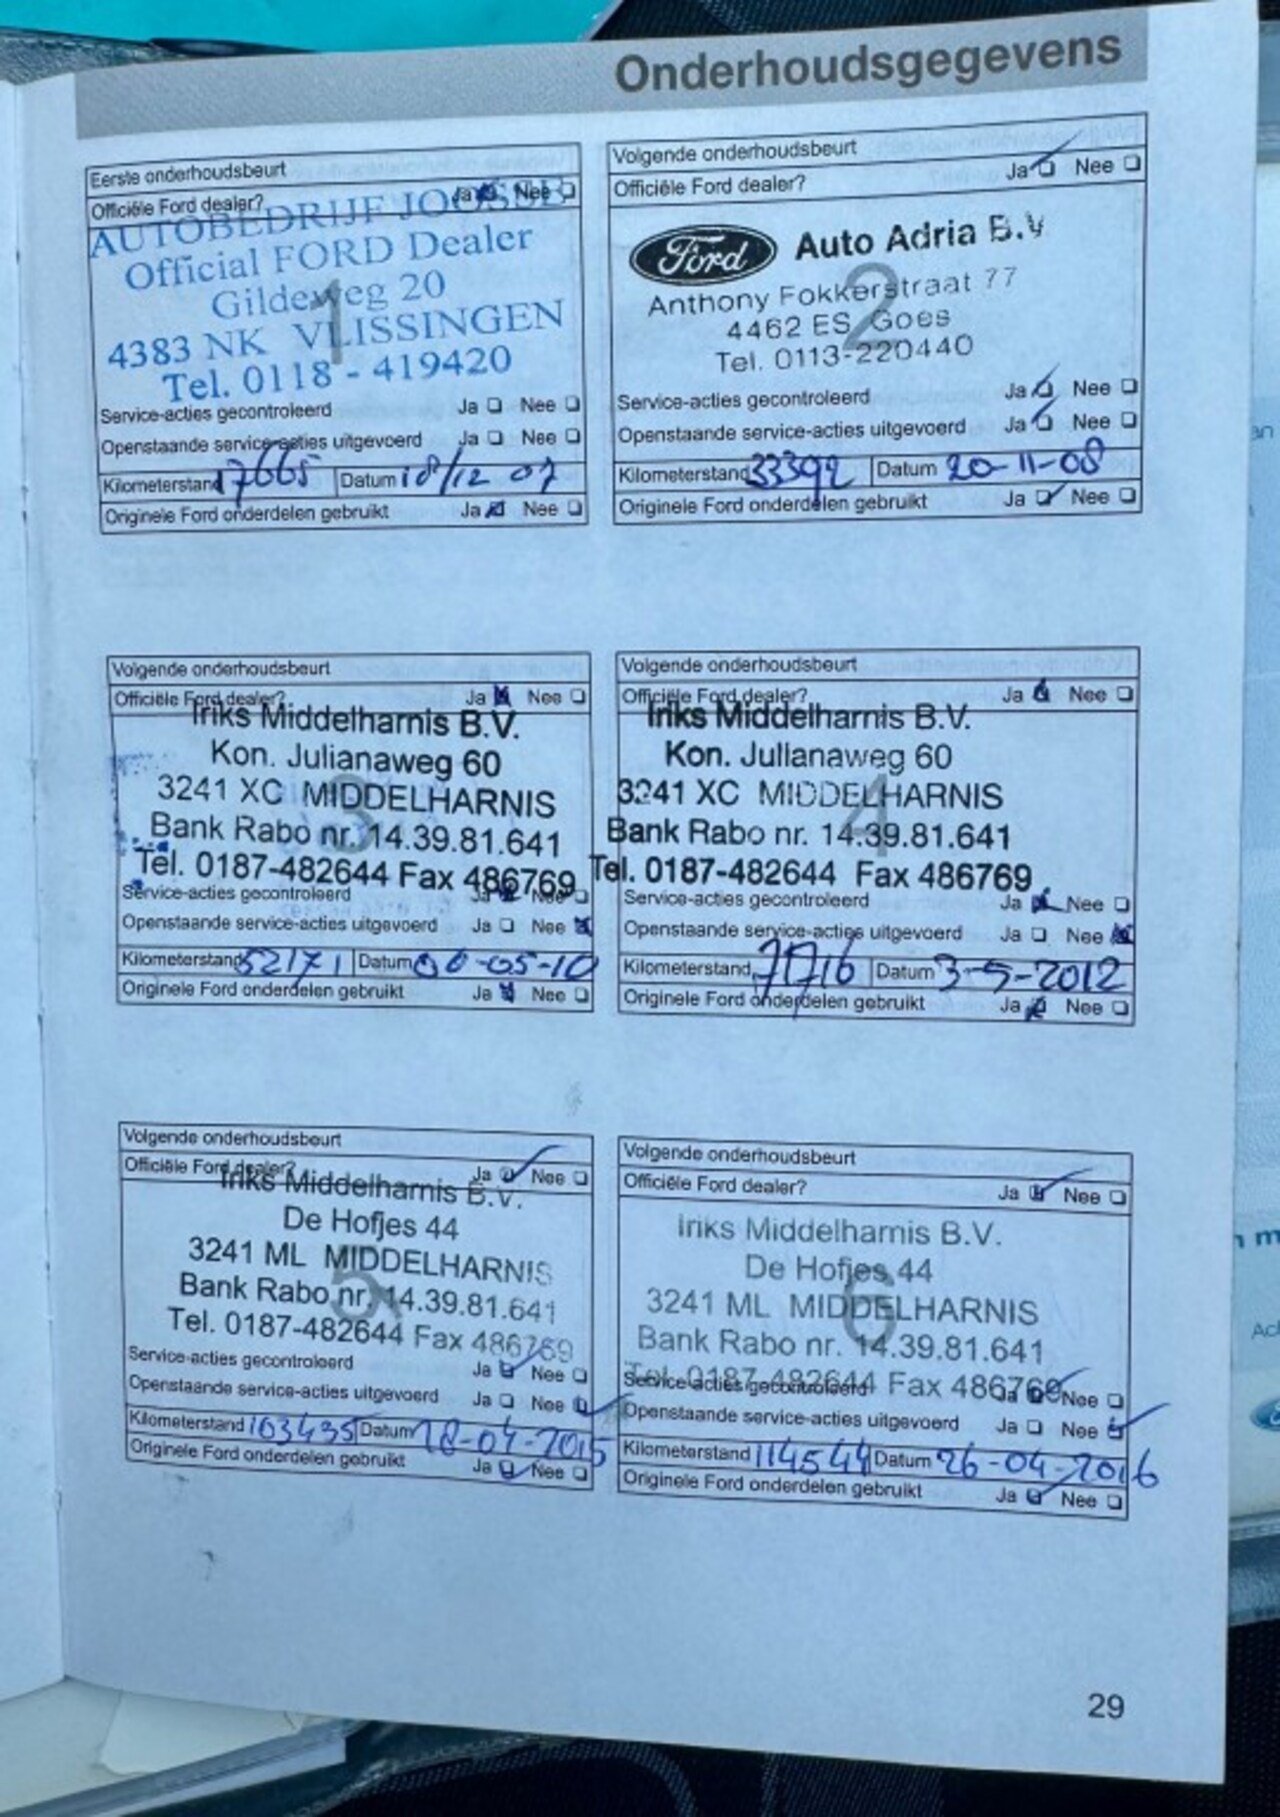 Onderhoudsgegevens
Eerste onderhoudsbeurt
Officiële Ford dealer? Ja Nee
AUTOBEDRIJF JOOSSE
Official FORD Dealer
Gildeweg 20
1
4383 NK VLISSINGEN
Tel. 0118 - 419420
Service-acties gecontroleerd Ja Nee
Openstaande service-acties uitgevoerd Ja Nee
Kilometerstand 17665 Datum 18/12 07
Originele Ford onderdelen gebruikt Ja Nee
Volgende onderhoudsbeurt
Officiële Ford dealer? Ja Nee
Ford Auto Adria B.V
Anthony Fokkerstraat 77
2
4462 ES Goes
Tel. 0113-220440
Service-acties gecontroleerd Ja Nee
Openstaande service-acties uitgevoerd Ja Nee
Kilometerstand 33392 Datum 20-11-08
Originele Ford onderdelen gebruikt Ja Nee
Volgende onderhoudsbeurt
Officiële Ford dealer? Ja Nee
Iriks Middelharnis B.V.
Kon. Julianaweg 60
3241 XC MIDDELHARNIS
3
Bank Rabo nr. 14.39.81.641
Tel. 0187-482644 Fax 486769
Service-acties gecontroleerd Ja Nee
Openstaande service-acties uitgevoerd Ja Nee
Kilometerstand 52171 Datum 06-05-10
Originele Ford onderdelen gebruikt Ja Nee
Volgende onderhoudsbeurt
Officiële Ford dealer? Ja Nee
Iriks Middelharnis B.V.
Kon. Julianaweg 60
3241 XC MIDDELHARNIS
4
Bank Rabo nr. 14.39.81.641
Tel. 0187-482644 Fax 486769
Service-acties gecontroleerd Ja Nee
Openstaande service-acties uitgevoerd Ja Nee
Kilometerstand 71716 Datum 3-5-2012
Originele Ford onderdelen gebruikt Ja Nee
Volgende onderhoudsbeurt
Officiële Ford dealer? Ja Nee
Iriks Middelharnis B.V.
De Hofjes 44
3241 ML MIDDELHARNIS
5
Bank Rabo nr. 14.39.81.641
Tel. 0187-482644 Fax 486769
Service-acties gecontroleerd Ja Nee
Openstaande service-acties uitgevoerd Ja Nee
Kilometerstand 103435 Datum 28-04-2015
Originele Ford onderdelen gebruikt Ja Nee
Volgende onderhoudsbeurt
Officiële Ford dealer? Ja Nee
Iriks Middelharnis B.V.
De Hofjes 44
6
3241 ML MIDDELHARNIS
Bank Rabo nr. 14.39.81.641
Tel. 0187-482644 Fax 486769
Service-acties gecontroleerd Ja Nee
Openstaande service-acties uitgevoerd Ja Nee
Kilometerstand 114544 Datum 26-04-2016
Originele Ford onderdelen gebruikt Ja Nee
29